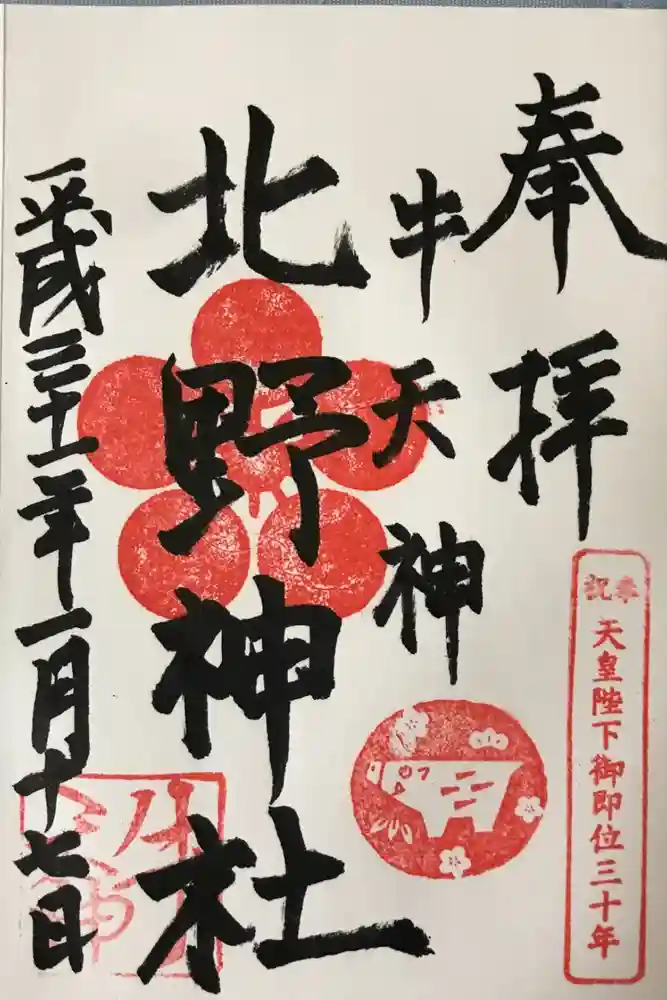 奉拝
奉祝
天皇陛下御即位三十年
牛天神
北野神社
平成三十一年一月十七日